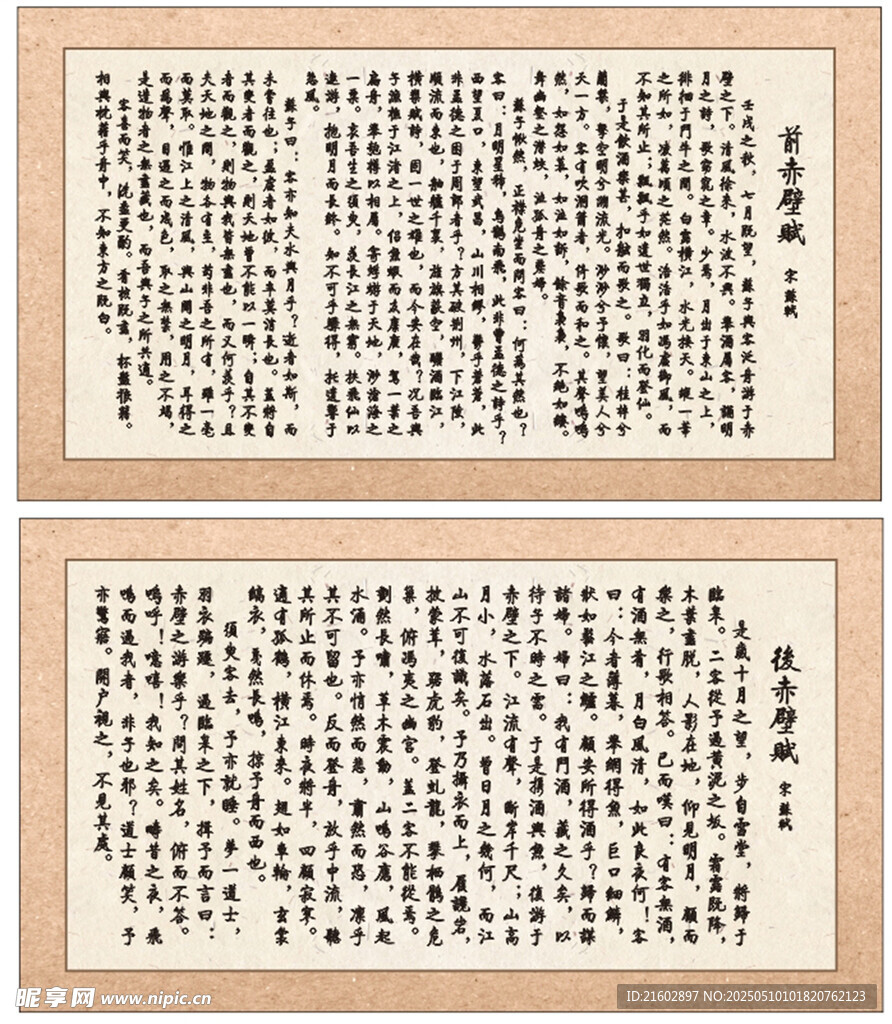 前赤壁賦 宋 蘇軾
壬戌之秋，七月既望，蘇子與客泛舟游于赤
壁之下。清風徐來，水波不興。舉酒屬客，誦明
月之詩，歌窈窕之章。少焉，月出于東山之上，
徘徊于鬥牛之間。白露橫江，水光接天。縱一葦
之所如，凌萬頃之茫然。浩浩乎如馮虛御風，而
不知其所止；飄飄乎如遺世獨立，羽化而登仙。
于是飲酒樂甚，扣舷而歌之。歌曰：桂棹兮
蘭槳，擊空明兮溯流光。渺渺兮予懷，望美人兮
天一方。客有吹洞簫者，倚歌而和之。其聲嗚嗚
然，如怨如慕，如泣如訴，餘音裊裊，不絕如縷。
舞幽壑之潛蛟，泣孤舟之嫠婦。
蘇子愀然，正襟危坐而問客曰：何為其然也？
客曰：月明星稀，烏鵲南飛，此非曹孟德之詩乎？
西望夏口，東望武昌，山川相繆，鬱乎蒼蒼，此
非孟德之困于周郎者乎？方其破荊州，下江陵，
順流而東也，舳艫千里，旌旗蔽空，釃酒臨江，
橫槊賦詩，固一世之雄也，而今安在哉？況吾與
子漁樵于江渚之上，侶魚蝦而友麋鹿，駕一葉之
扁舟，舉匏樽以相屬。寄蜉蝣于天地，渺滄海之
一粟。哀吾生之須臾，羨長江之無窮。挾飛仙以
遨游，抱明月而長終。知不可乎驟得，托遺響于
悲風。
蘇子曰：客亦知夫水與月乎？逝者如斯，而
未嘗往也；盈虛者如彼，而卒莫消長也。蓋將自
其變者而觀之，則天地曾不能以一瞬；自其不變
者而觀之，則物與我皆無盡也，而又何羨乎？且
夫天地之間，物各有主，苟非吾之所有，雖一毫
而莫取。惟江上之清風，與山間之明月，耳得之
而為聲，目遇之而成色，取之無禁，用之不竭，
是造物者之無盡藏也，而吾與子之所共適。
客喜而笑，洗盞更酌。肴核既盡，杯盤狼籍。
相與枕藉乎舟中，不知東方之既白。
後赤壁賦 宋 蘇軾
是歲十月之望，步自雪堂，將歸于
臨皋。二客從予過黃泥之坂。霜露既降，
木葉盡脫，人影在地，仰見明月，顧而
樂之，行歌相答。已而嘆曰：有客無酒，
有酒無肴，月白風清，如此良夜何！客
曰：今者薄暮，舉網得魚，巨口細鱗，
狀如松江之鱸。顧安所得酒乎？歸而謀
諸婦。婦曰：我有鬥酒，藏之久矣，以
待子不時之需。于是攜酒與魚，復游于
赤壁之下。江流有聲，斷岸千尺；山高
月小，水落石出。曾日月之幾何，而江
山不可復識矣。予乃攝衣而上，履巉岩，
披蒙茸，踞虎豹，登虬龍，攀栖鶻之危
巢，俯馮夷之幽宮。蓋二客不能從焉。
劃然長嘯，草木震動，山鳴谷應，風起
水涌。予亦悄然而悲，肅然而恐，凜乎
其不可留也。反而登舟，放乎中流，聽
其所止而休焉。時夜將半，四顧寂寥。
適有孤鶴，橫江東來。翅如車輪，玄裳
縞衣，戛然長鳴，掠予舟而西也。
須臾客去，予亦就睡。夢一道士，
羽衣蹁躚，過臨皋之下，揖予而言曰：
赤壁之游樂乎？問其姓名，俯而不答。
嗚呼！噫嘻！我知之矣。疇昔之夜，飛
鳴而過我者，非子也邪？道士顧笑，予
亦驚寤。開户視之，不見其處。
昵享网 www.nipic.cn
ID:21602897 NO:20250510101820762123